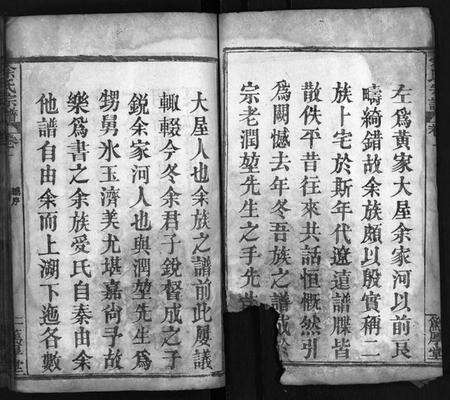 左為黃家大屋余家河以前民
疇綺錯故余族頗以殷實稱二
族卜宅於斯年代遼遠譜牒皆
散佚平昔往來共話恒慨然引
為闕憾去年冬吾族之譜成於
宗老潤堃先生之手先生
大屋人也余族之譜前此屢議
輒輟今冬余君子銳督成之子
銳余家河人也與潤堃先生為
甥舅氷玉濟美尤堪嘉尙子故
樂為書之余族受氏自秦由余
他譜自由余而上溯下迤各數
余氏宗譜 卷
譜序